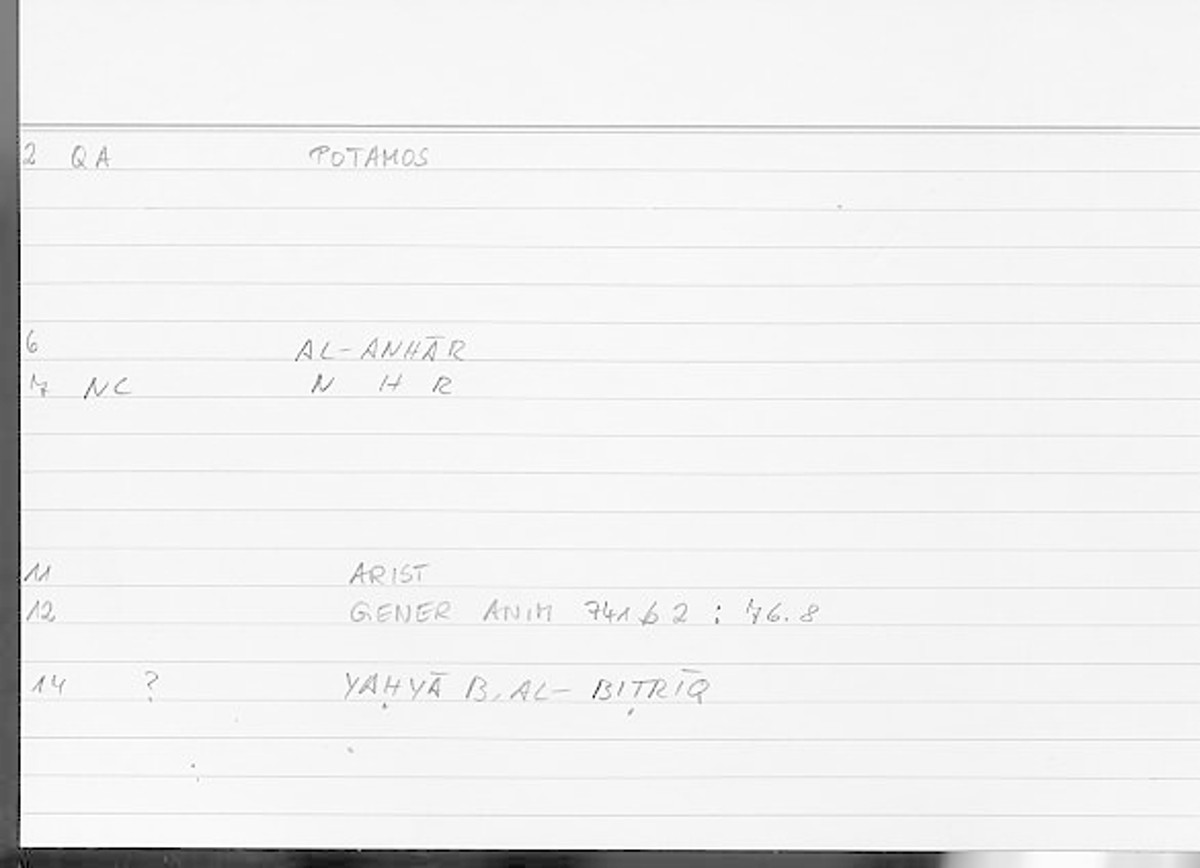 2 QA POTAMOS
6 AL-ANHĀR
7 NC N H R
11 ARIST
12 GENER ANIM 741b2 : 76.8
14 ? YAḤYĀ B. AL-BIṬRĪQ